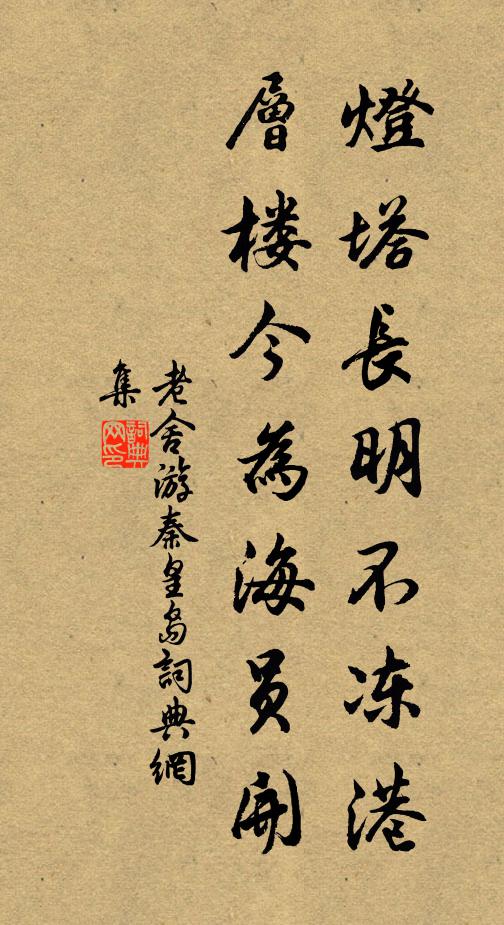 燈塔長明不冻港
層楼今為海員開
老舍游秦皇島詞典網
集
詞典
网印